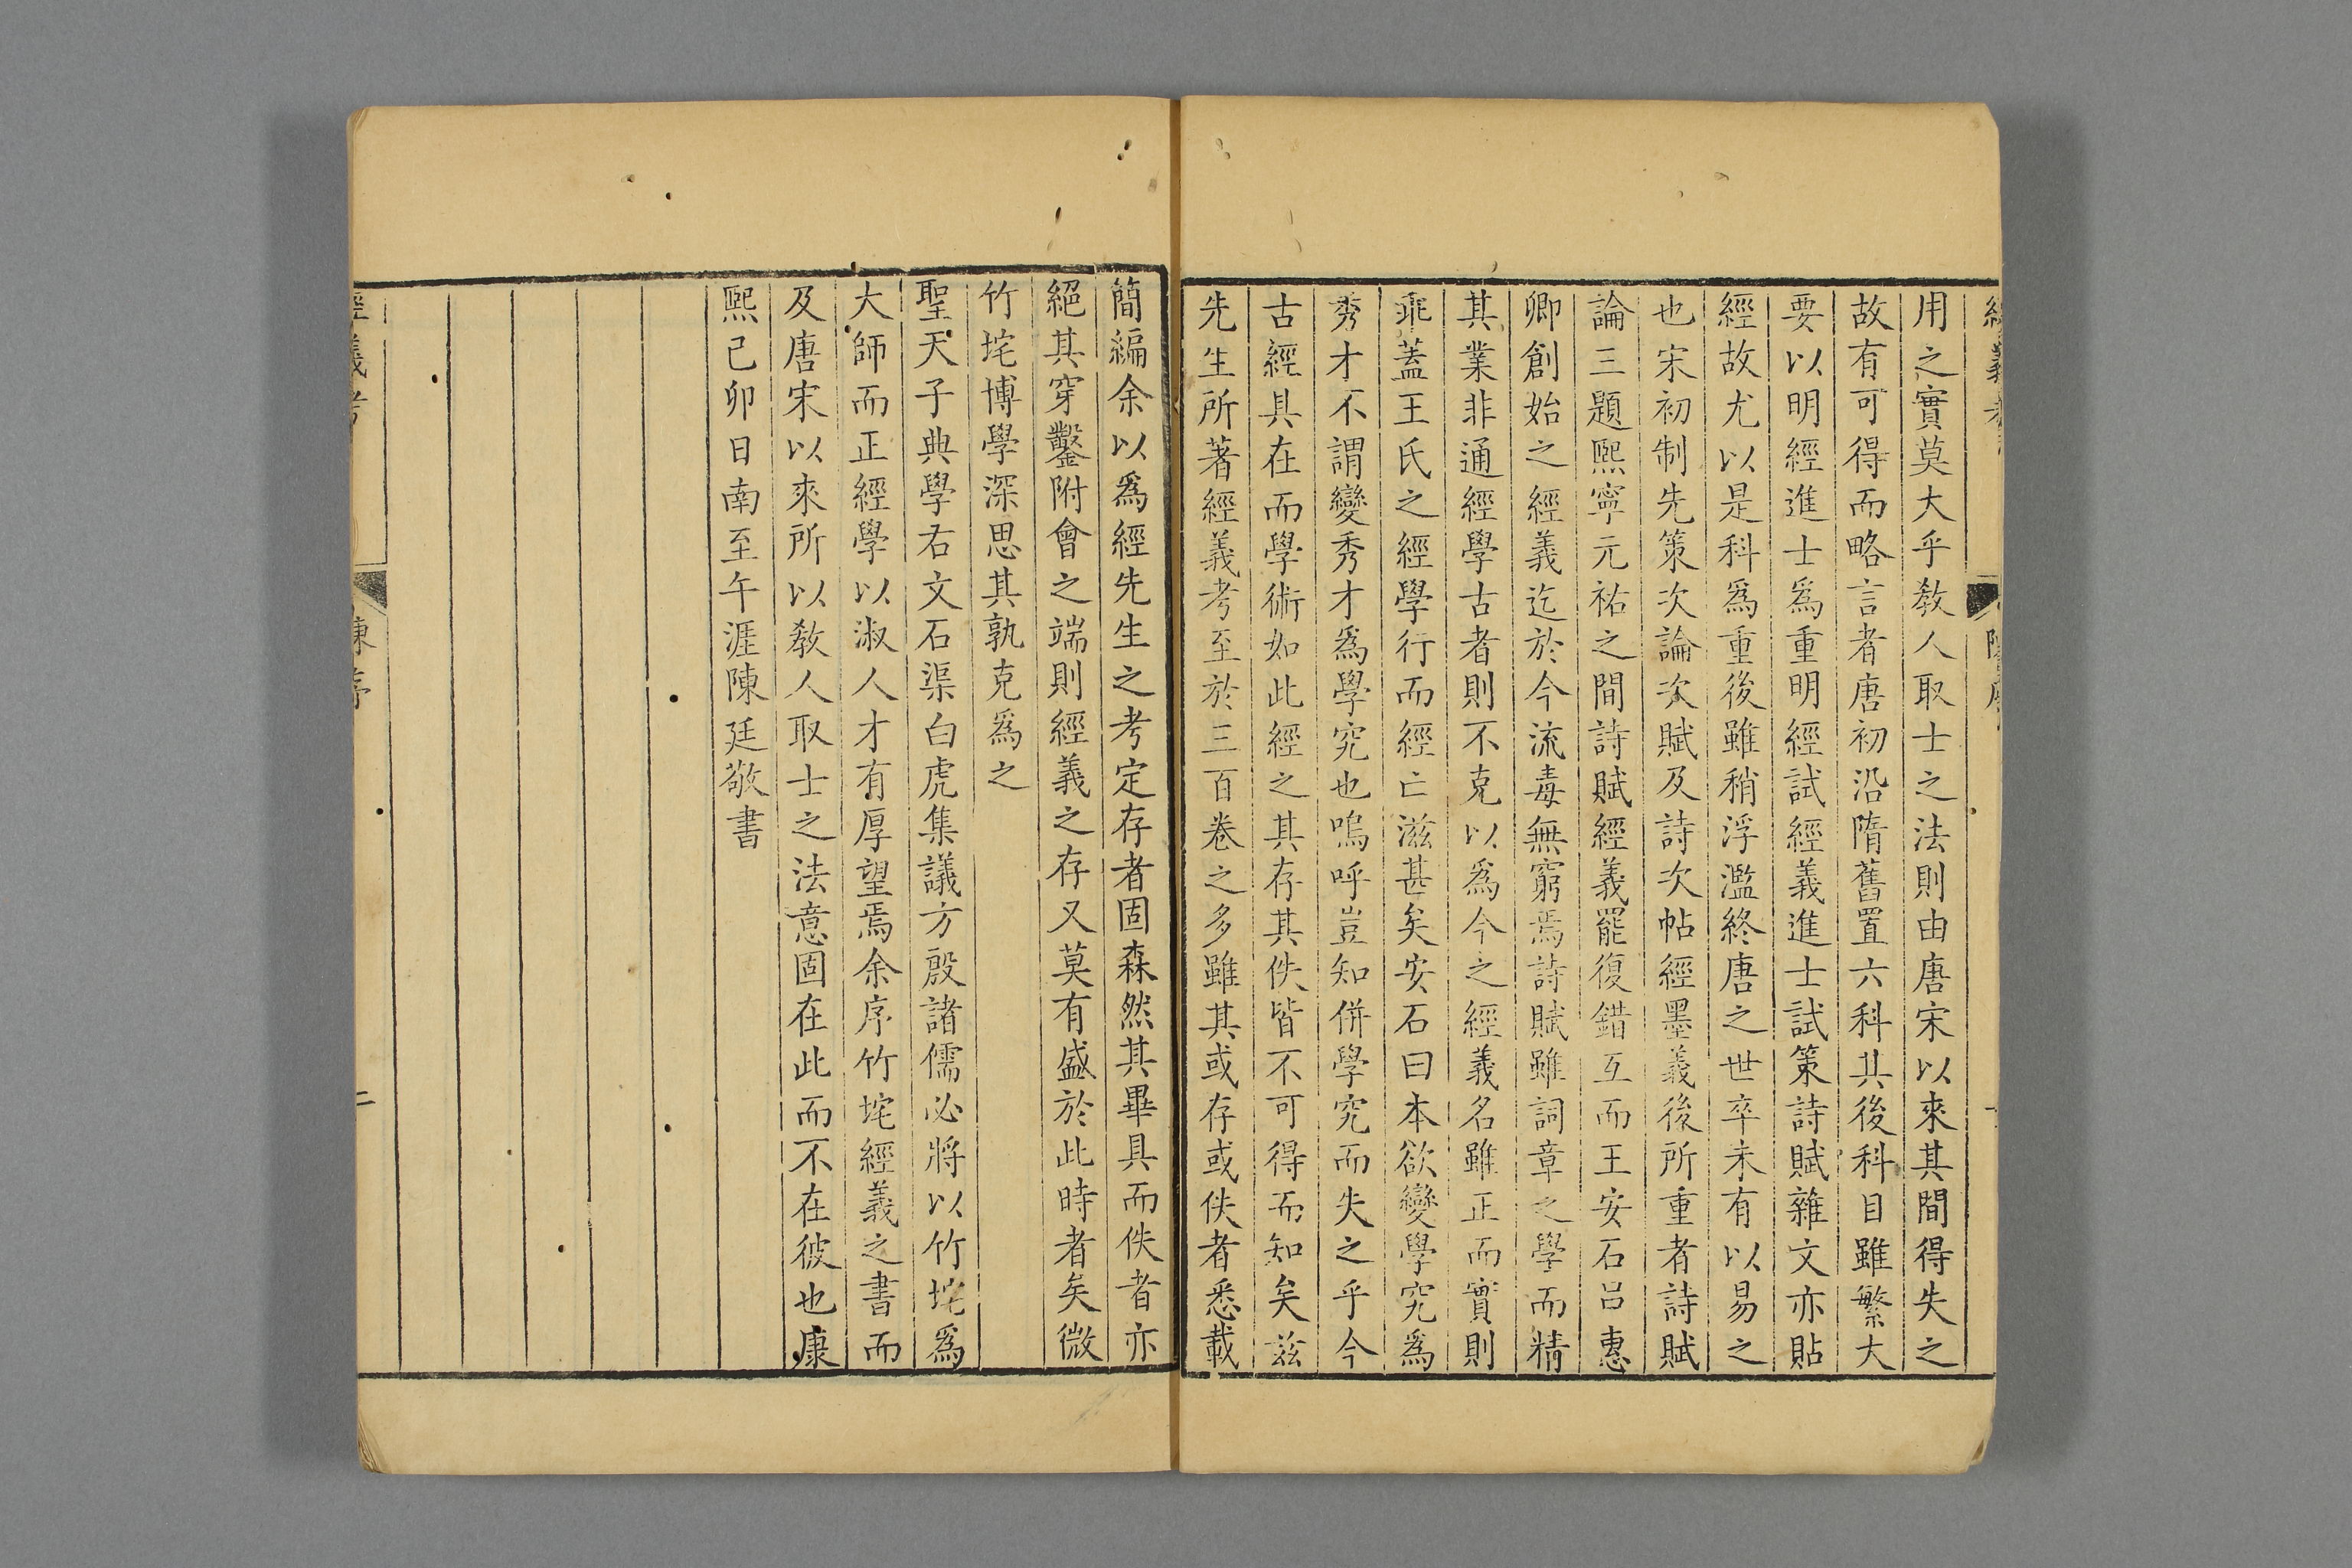 經義考
陳序
用之實莫大乎敎人取士之法則由唐宋以來其間得失之
故有可得而略言者唐初沿隋舊置六科其後科目雖繁大
要以明經進士爲重明經試經義進士試策詩賦雜文亦貼
經故尤以是科爲重後雖稍浮濫終唐之世卒未有以易之
也宋初制先策次論次賦及詩次帖經墨義後所重者詩賦
論三題熙寧元祐之間詩賦經義罷復錯互而王安石呂惠
卿創始之經義迄於今流毒無窮焉詩賦雖詞章之學而精
其業非通經學古者則不克以爲今之經義名雖正而實則
乖蓋王氏之經學行而經亡滋甚矣安石曰本欲變學究爲
秀才不謂變秀才爲學究也嗚呼豈知併學究而失之乎今
古經具在而學術如此經之其存其佚皆不可得而知矣茲
先生所著經義考至於三百卷之多雖其或存或佚者悉載
簡編余以爲經先生之考定存者固森然其畢具而佚者亦
絕其穿鑿附會之端則經義之存又莫有盛於此時者矣微
竹垞博學深思其孰克爲之
聖天子典學右文石渠白虎集議方殷諸儒必將以竹垞爲
大師而正經學以淑人才有厚望焉余序竹垞經義之書而
及唐宋以來所以敎人取士之法意固在此而不在彼也康
熙己卯日南至午涯陳廷敬書
經義考
陳序
二